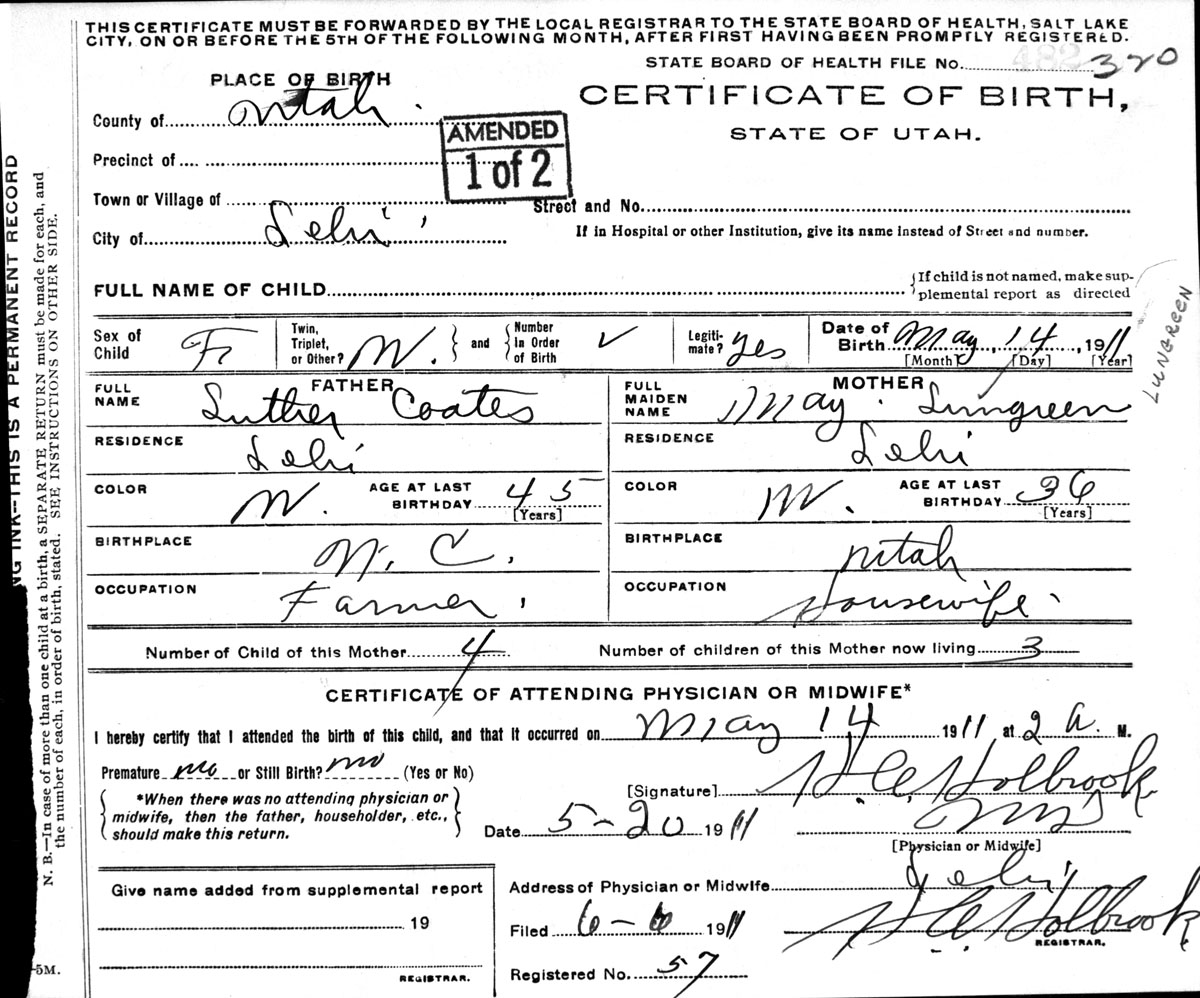 THIS CERTIFICATE MUST BE FORWARDED BY THE LOCAL REGISTRAR TO THE STATE BOARD OF HEALTH, SALT LAKE
CITY, ON OR BEFORE THE 5TH OF THE FOLLOWING MONTH, AFTER FIRST HAVING BEEN PROMPTLY REGISTERED.
STATE BOARD OF HEALTH FILE No. 482 320
PLACE OF BIRTH
CERTIFICATE OF BIRTH,
STATE OF UTAH.
County of Utah.
AMENDED
1 of 2
Precinct of
Town or Village of
Street and No.
City of Lehi
If in Hospital or other Institution, give its name instead of Street and number.
FULL NAME OF CHILD
{If child is not named, make sup-
plemental report as directed
Sex of Child F
Twin, Triplet, or Other? W. } and { Number In Order of Birth ✓
Legiti-mate? yes
Date of Birth May 14, 1911
[Month] [Day] [Year]
LUNGREEN
FATHER
FULL NAME Luther Coates
MOTHER
FULL MAIDEN NAME May Lungreen
RESIDENCE Lehi
RESIDENCE Lehi
COLOR W. AGE AT LAST BIRTHDAY 45 [Years]
COLOR W. AGE AT LAST BIRTHDAY 36 [Years]
BIRTHPLACE N. C.
BIRTHPLACE Utah
OCCUPATION Farmer
OCCUPATION Housewife
Number of Child of this Mother 4 Number of children of this Mother now living 3
CERTIFICATE OF ATTENDING PHYSICIAN OR MIDWIFE*
I hereby certify that I attended the birth of this child, and that it occurred on May 14 1911 at 2 a. M.
Premature no or Still Birth? no (Yes or No)
{ *When there was no attending physician or
midwife, then the father, householder, etc.,
should make this return. }
[Signature] H C Holbrook
MD
Date 5-20 1911
[Physician or Midwife]
Address of Physician or Midwife Lehi
Give name added from supplemental report
19
REGISTRAR.
Filed 6-6 1911 H C Holbrook
REGISTRAR.
Registered No. 57
NG INK--THIS IS A PERMANENT RECORD
N. B.—In case of more than one child at a birth, a SEPARATE RETURN must be made for each, and
the number of each, in order of birth, stated. SEE INSTRUCTIONS ON OTHER SIDE.
-5M.